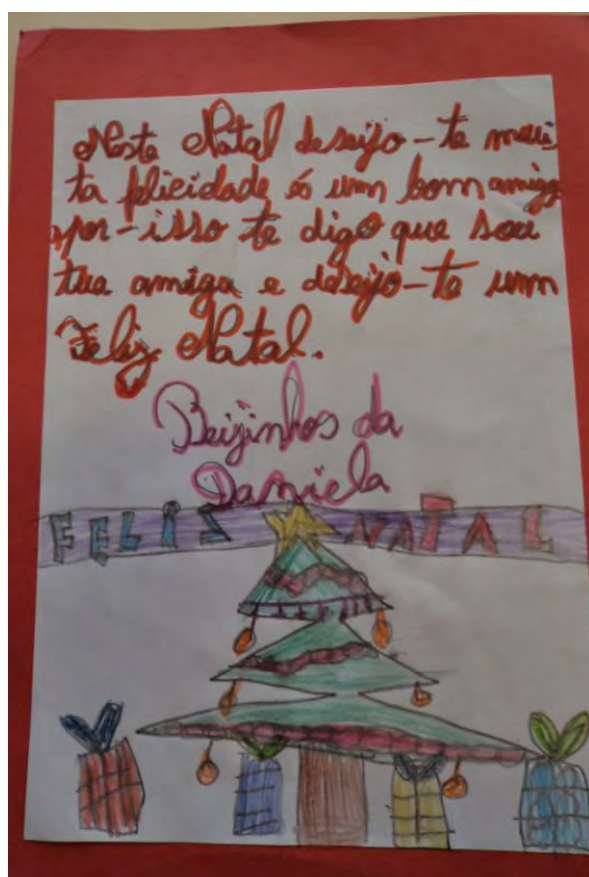 Neste Natal deseijo-te mui
ta flicidade és um bom amigo
por-isso te digo que sou
tua amiga e deseijo-te um
Feliz Natal.
Beijinhos da
Daniela
FELIS NATAL